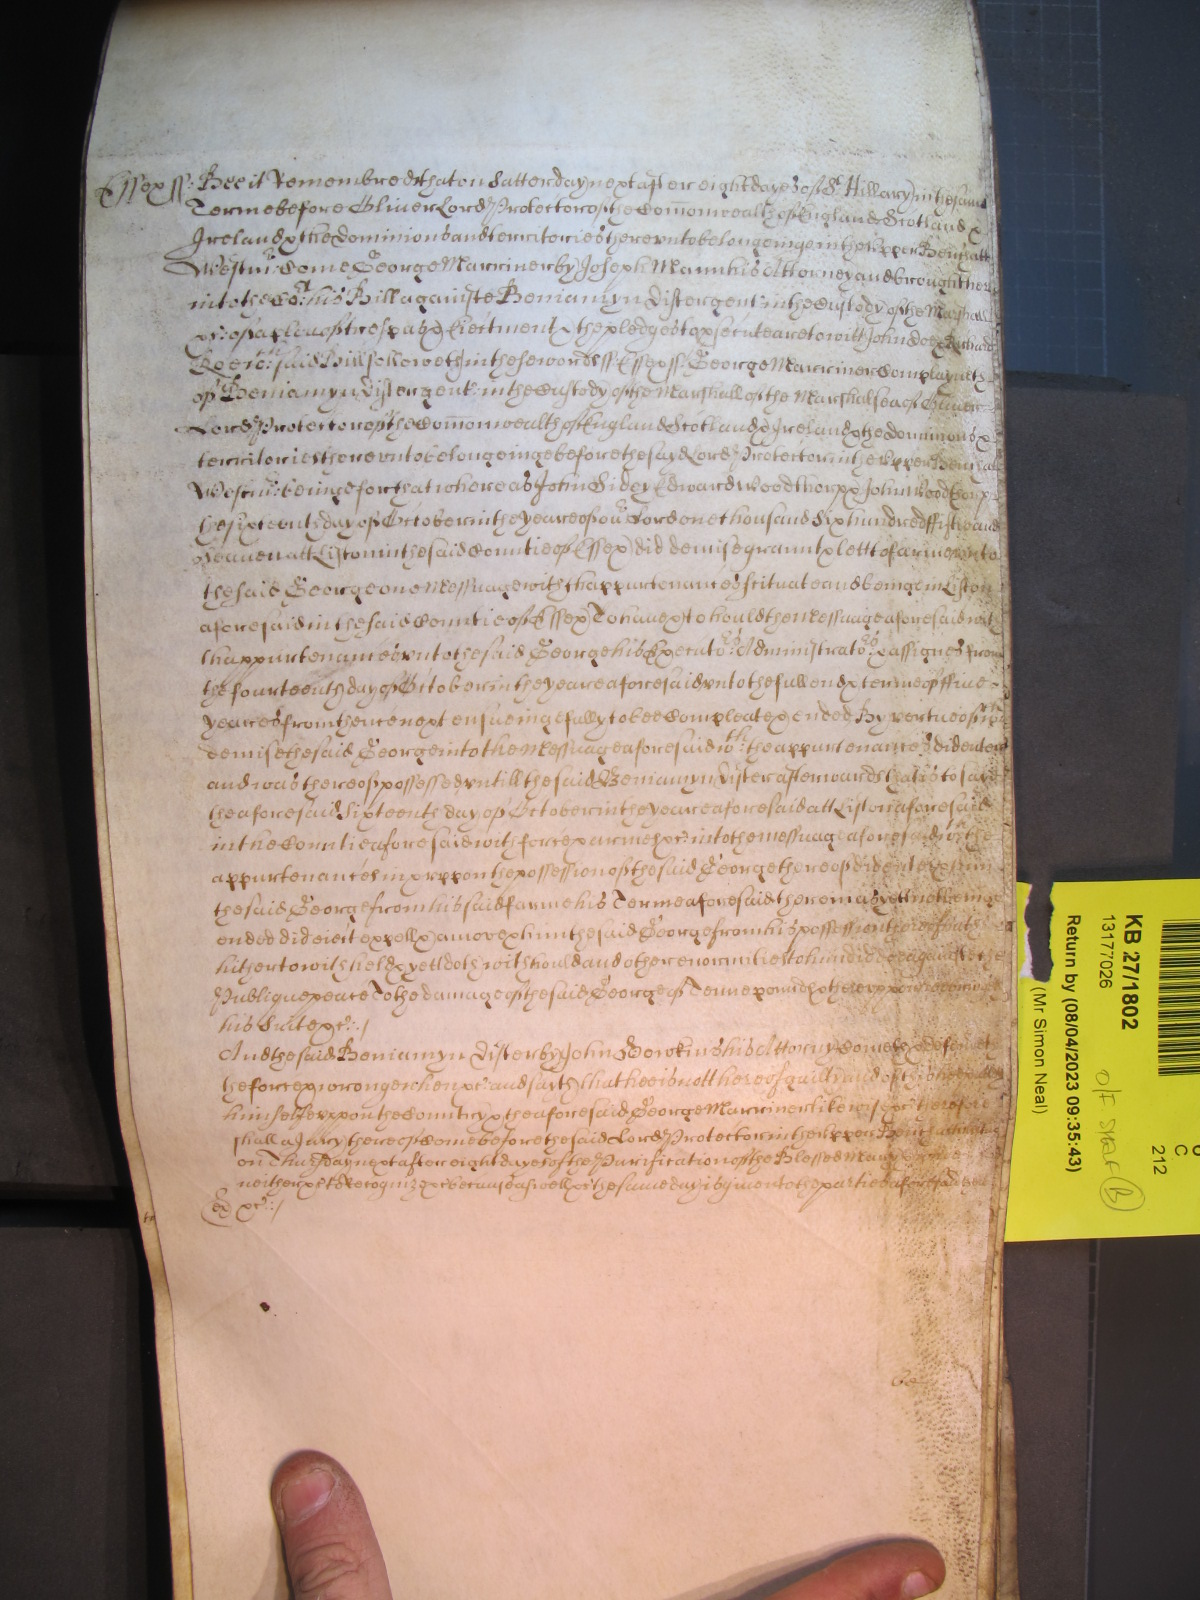 Essex ss: Bee it Remembred that on Satterday next after eight dayes of St Hillary in the same
Terme before Oliver Lord Protector of the Com̄onwealth of England Scotland &
Ireland & the Dominions and territories thereunto belongeinge in the Upper Bench att
Westmr: Come George Marriner by Joseph Mann his Attorney and brought here
into the Cort: his Bill againste Beniamyn Lister gent: in the Custody of the Marshall
&c: of a plea of trespas & Eiectment & the pledges to prosecute are to witt John Doe & Richard
Roe wch: said Bill followeth in these words ss Essex ss: George Marriner Complaynes
of Beniamyn Lister gent: in the Custody of the Marshall of the Marshalsea of Oliver
Lord Protector of the Com̄onwealth of England Scotland & Ireland & the Dominions &
territories thereunto belongeinge before the sayd Lord Protector in the Upper Bench att
Westmr: beinge for that whereas John Sidey Edward Woodthorpp & John Woodthorpp
the sixteenth day of October in the yeare of our Lord one thousand six hundred fiftie and
Seaven att Liston in the said Countie of Essex did demise graunt & lett to farme unto
the said George one Messuage with thappurtenances scituate and beinge in Liston
aforesaid in the said Countie of Essex To have & to hould the Messuage aforesaid with
thappurtenances unto the said George his Executors: Administrators: & assignes from
the fourteenth day of October in the yeare aforesaid unto the full end & terme of ffive
yeares from thence next ensueinge fully to bee Compleate & ended By vertue of which
demise the said George into the Messuage aforesaid wth: the appurtenances did enter
and was thereof possessed untill the said Beniamyn Lister afterwards that is to say
the aforesaid Sixteenth day of October in the yeare aforesaid att Liston aforesaid
in the Countie aforesaid with force & armes &c: into the messuage aforesaid with the
appurtenances in & uppon the possession of the said George thereof did enter & him
the said George from his said farme his Terme aforesaid therein as yett not beinge
ended did eiect expell & amove & him the said George from his possession thereof hath
hitherto withheld & yett doth withould and other enormities to him did doe against the
Publique peace To the damage of the said George of Tenne pounds & thereuppon he bringeth
his Suite &c:./
And the said Beniamyn Lister by John Hawkins his Attorny Comes & defendeth
the force & wronge when &c: and sayth that hee is not thereof guilty and of this he putteth
himselfe uppon the Country & the aforesaid George Marriner likewise &c: therefore
shall a Jury thereof Come before the said Lord Protector in the Upper Bench att Westmr
on Thursday next after eight dayes of the Purification of the Blessed Mary
neither &c: to Recogniz &c: because aswell &c: the same day is given to the parties aforesaid
&c:./
KB 27/1802
13177026
Return by (08/04/2023 09:35:43)
(Mr Simon Neal)
C
212